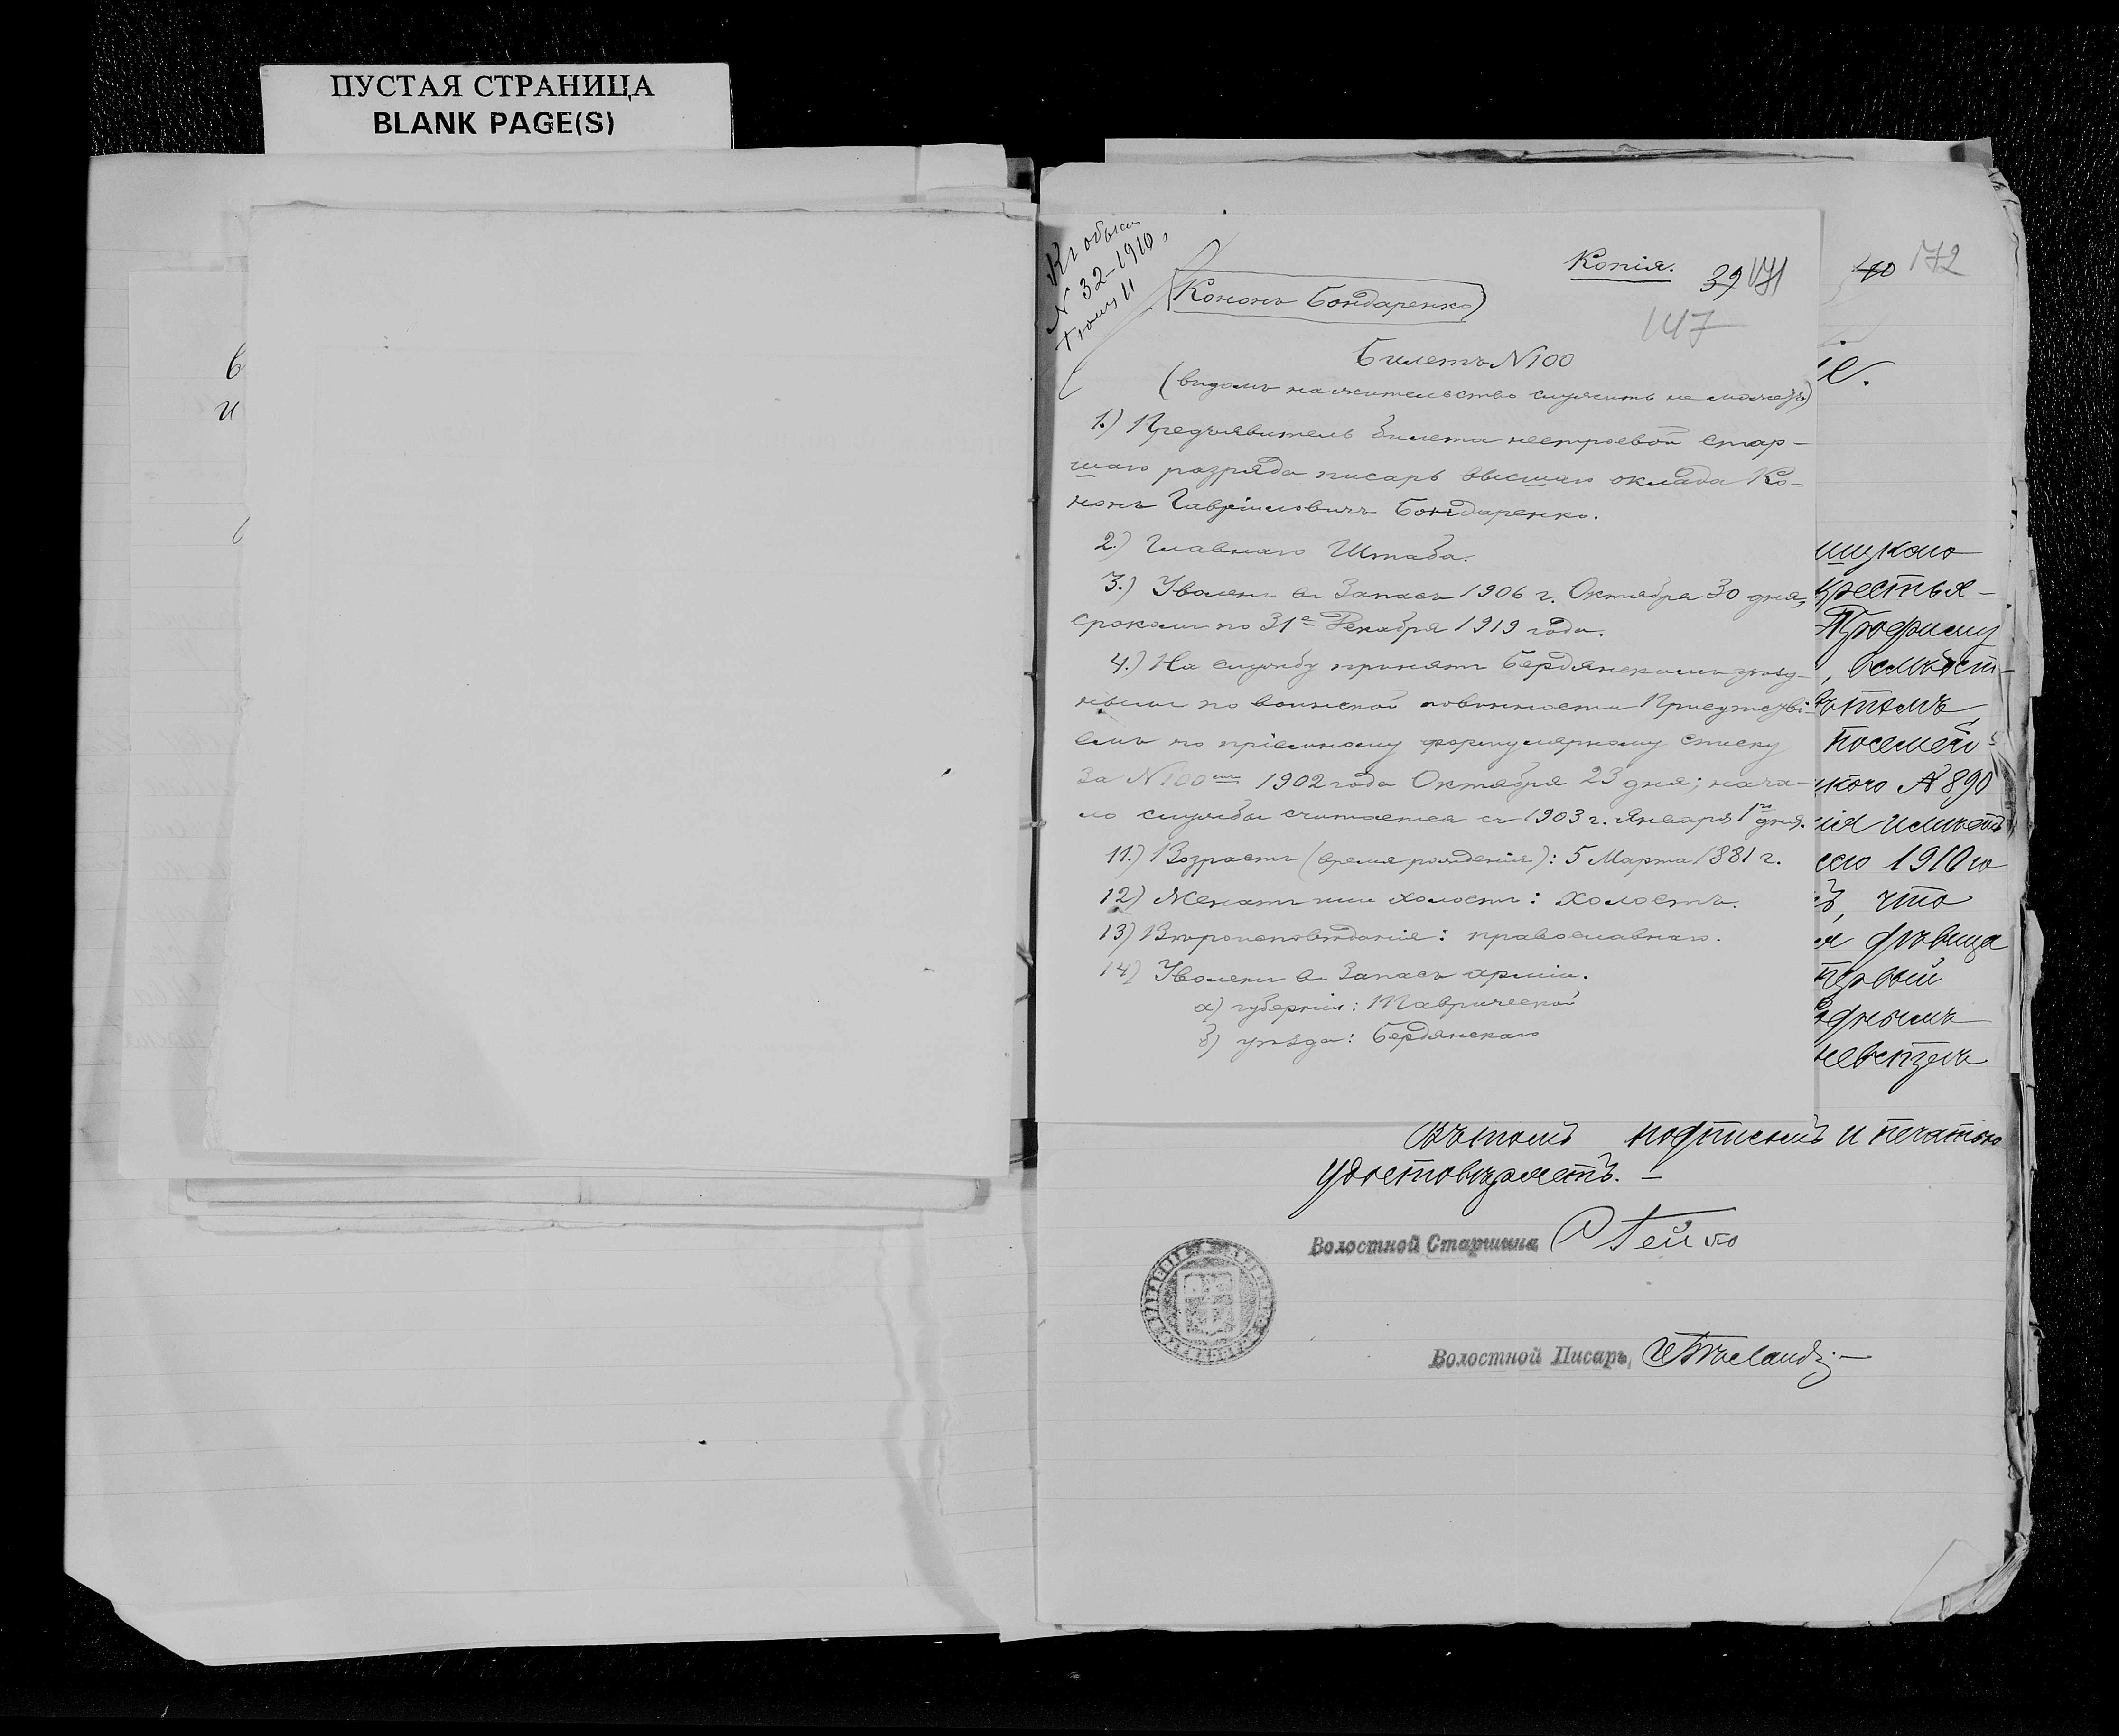 ПУСТАЯ СТРАНИЦА
BLANK PAGE(S)
в
и
N 32-1910,
Копія.
39 171
40 172
Кононъ Бондаренко
147
Билетъ N100
(видомъ на жительство служить не можетъ)
1.) Предъявитель билета нестроевой стар-
шаго разряда писарь высшаго оклада Ко-
нонъ Гавріиловичъ Бондаренко.
2.) Главнаго Штаба.
3.) Уволенъ въ Запасъ 1906 г. Октября 30 дня,
срокомъ по 31е Декабря 1919 года.
4.) На службу принятъ Бердянскимъ уѣзд-
нымъ по воинской повинности Присутстві-
емъ по пріемному формулярному списку
за N 100 1902 года Октября 23 дня; нача-
ло службы считается съ 1903 г. Января 1го дня.
11.) Возрастъ (время рожденія): 5 Марта 1881 г.
12) Женатъ или холостъ: холостъ.
13) Вѣроисповѣданія: православнаго.
14) Уволенъ въ Запасъ арміи.
а) губерніи: Таврической
б) уѣзда: Бердянскаго
крестья-
Трофиму
посемей-
N 890
1910 го
что
дѣвица
первый
подписомъ и печатью
удостовѣряетъ. –
Волостной Старшина
Волостной Писарь,